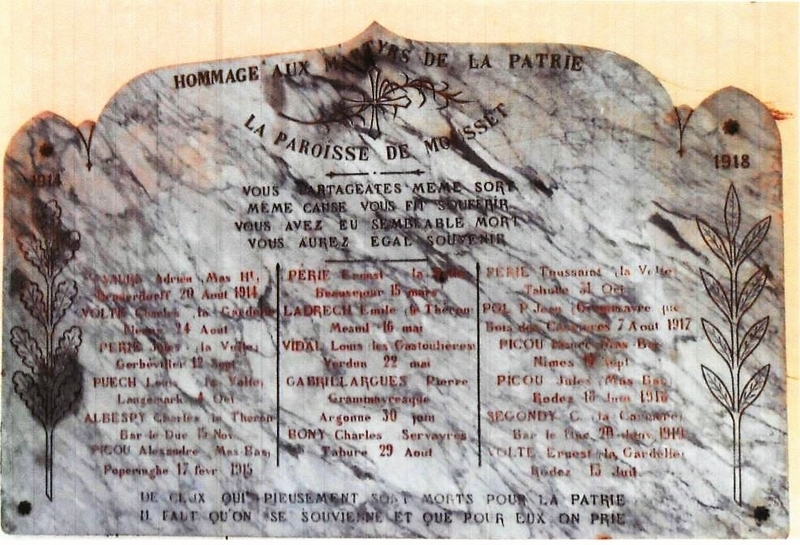 HOMMAGE AUX MARTYRS DE LA PATRIE
LA PAROISSE DE MOUSSET
1914
1918
VOUS PARTAGEATES MEME SORT
MÊME CAUSE VOUS FIT SOUFFRIR
VOUS AVEZ EU SEMBLABLE MORT
VOUS AUREZ EGAL SOUVENIR
Adrien Mas Ht,
20 Août 1914
VOLTE Charles la Gardelle
24 Aout
PERIE Jules la Volte,
Gerbéviller 12 Sept
PUECH Louis la Volte,
Langemark 4 Oct
ALBESPY Charles le Théron
Bar-le-Duc 15 Nov.
PICOU Alexandre Mas Bas,
Poperinghe 17 fevr 1915
PERIE Ernest la Volte
Beausejour 15 mars
LADRECH Emile le Théron
16 mai
VIDAL Louis les Gastoulières
Verdun 22 mai
GABRILLARGUES Pierre
Grammayresque
Argonne 30 juin
BONY Charles Servayres
Tahure 29 Aout
PERIE Toussaint la Volte,
Tahure 31 Oct
POL P Jean Grammayre que
Bois des 7 Aout 1917
PICOU Mas Bas,
Nimes Sept
PICOU Jules Mas Bas,
Rodez 18 Juin 1918
SEGONDY C. la
Bar le Duc, 28 Janv. 1919
VOLTE Ernest la Gardelle,
Rodez 15 Juil.
DE CEUX QUI PIEUSEMENT SONT MORTS POUR LA PATRIE
IL FAUT QU'ON SE SOUVIENNE ET QUE POUR EUX ON PRIE